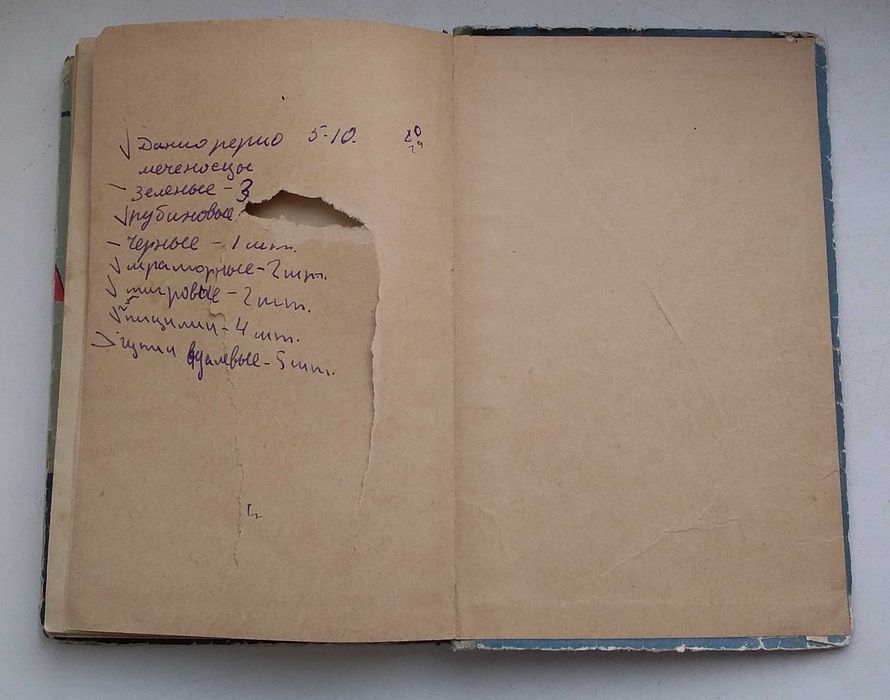 Данио рерио 5-10. 20
меченосцы
зеленые - 3
рубиновые
черные - 1 шт.
мраморные - 2 шт.
тигровые - 2 шт.
пицилии - 4 шт.
гупии - 5 шт.